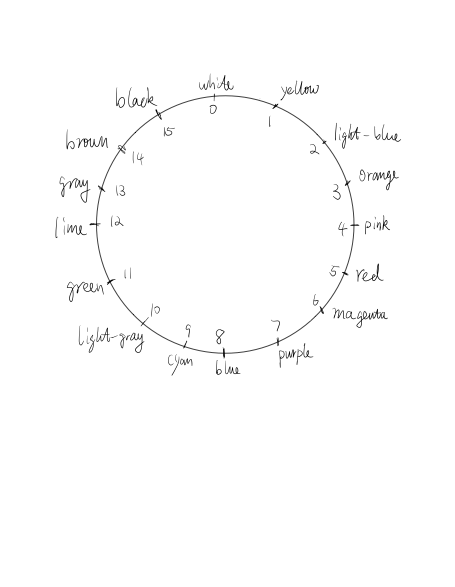 white
0
yellow
1
light-blue
2
orange
3
pink
4
red
5
magenta
6
purple
7
blue
8
cyan
9
light-gray
10
green
11
lime
12
gray
13
brown
14
black
15